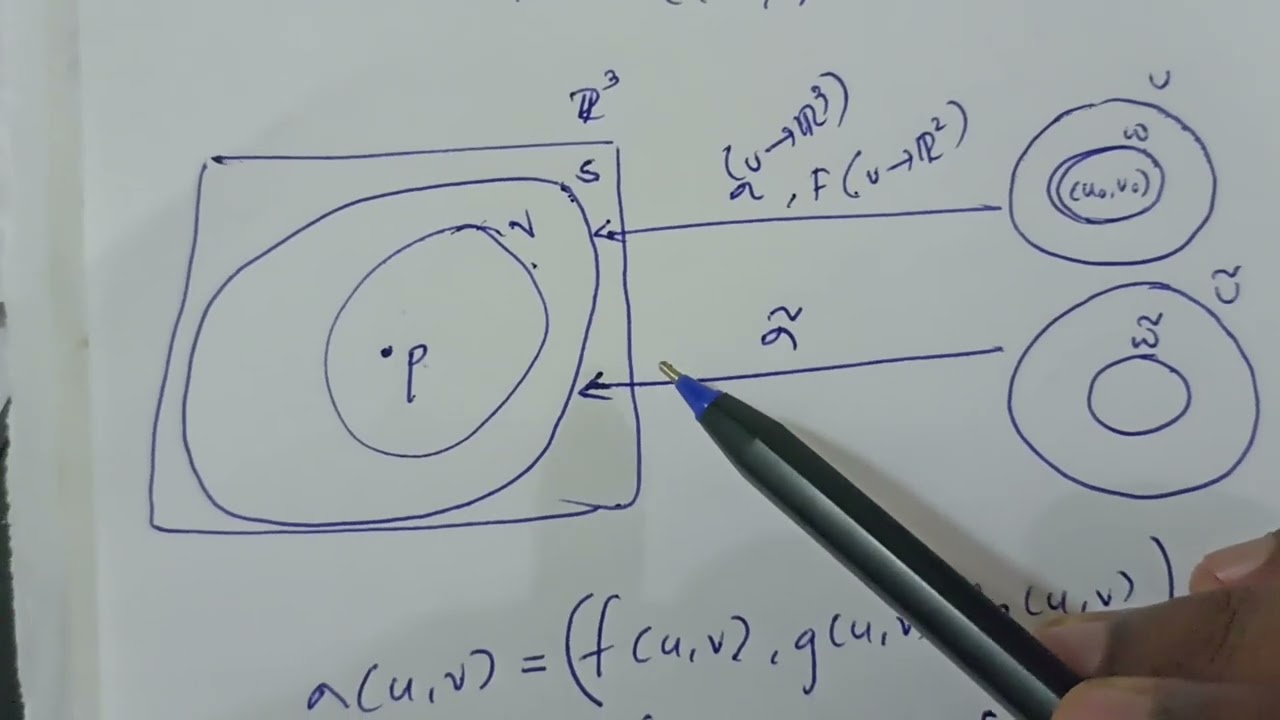 ℝ³
S
V
p
(U→ℝ³)
σ , F(U→ℝ²)
U
ω
(u₀,v₀)
σ̃
Ũ
ω̃
σ(u,v) = (f(u,v), g(u,v (u,v))